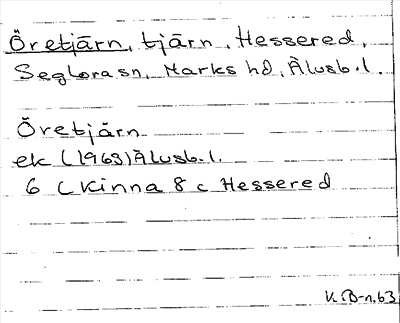 Öretjärn, tjärn, Hessered,
Seglora sn, Marks hd, Älvsb. l.
Öretjärn
ek (1968) Älvsb. l.
6 C Kinna 8 c Hessered
K.B-n.63